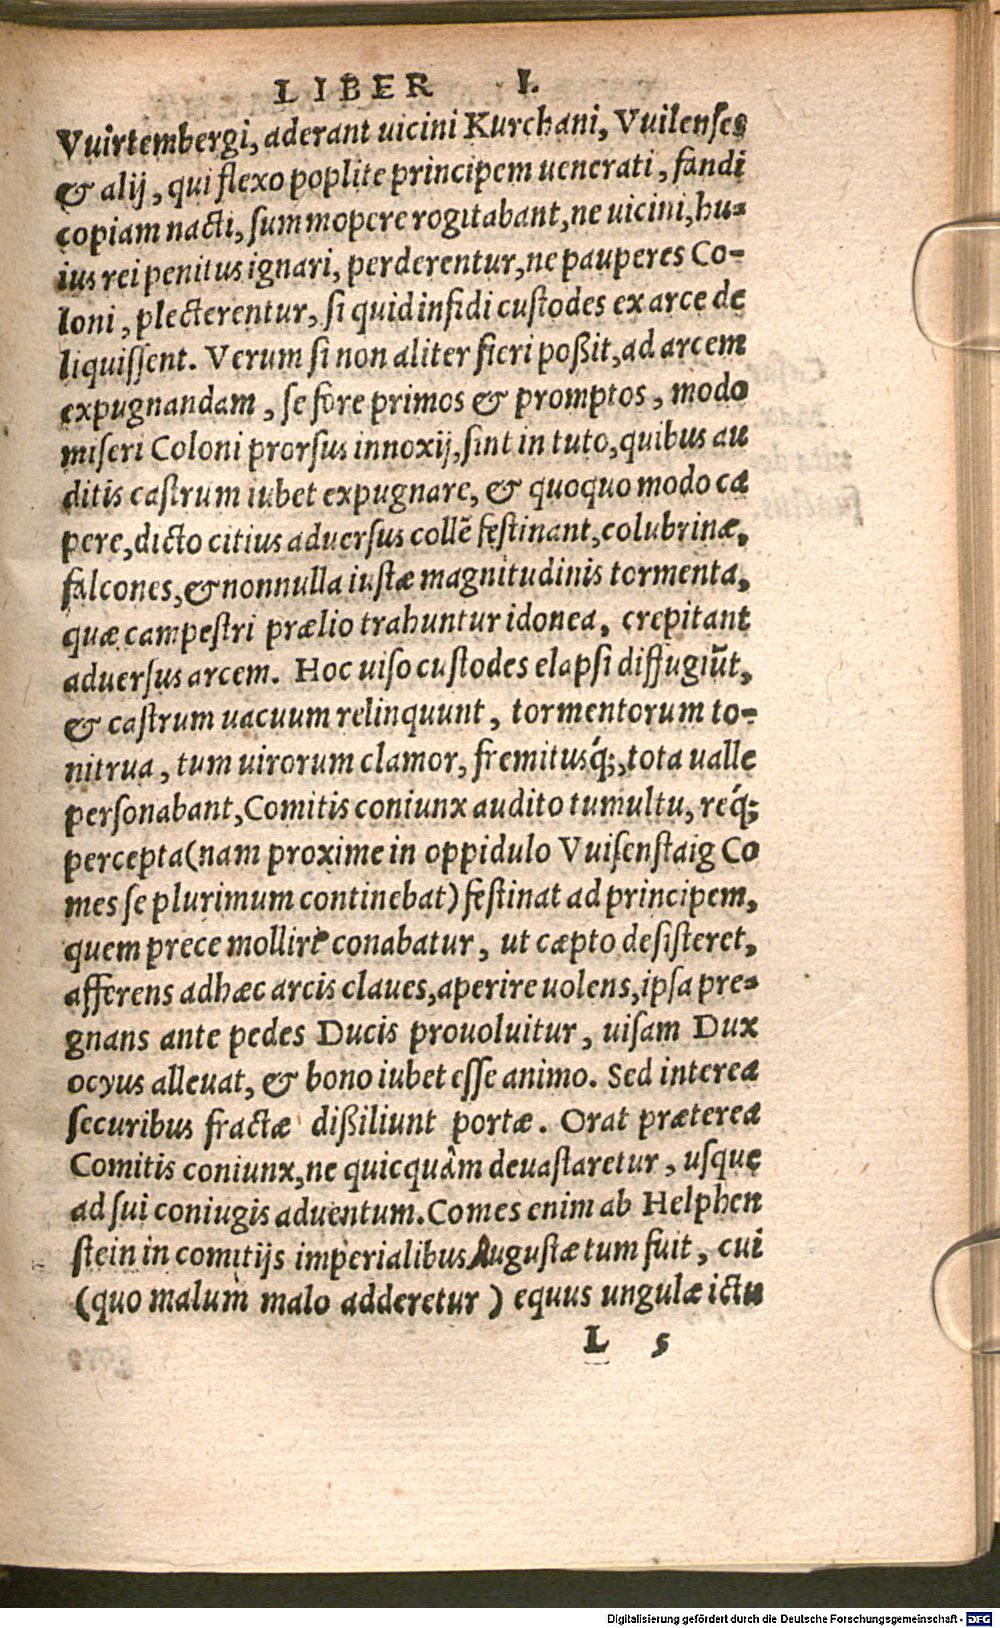 LIBER I.
Vuirtembergi, aderant uicini Kurchani, Vuilenses
& alij, qui flexo poplite principem uenerati, fandi
copiam nacti, summopere rogitabant, ne uicini, hu-
ius rei penitus ignari, perderentur, ne pauperes Co-
loni, plecterentur, si quid infidi custodes ex arce de
liquissent. Verum si non aliter fieri poßit, ad arcem
expugnandam, se fore primos & promptos, modo
miseri Coloni prorsus innoxij, sint in tuto, quibus au
ditis castrum iubet expugnare, & quoquo modo ca
pere, dicto citius aduersus collẽ festinant, colubrinæ,
falcones, & nonnulla iustæ magnitudinis tormenta,
quæ campestri prælio trahuntur idonea, crepitant
aduersus arcem. Hoc uiso custodes elapsi diffugiũt,
& castrum uacuum relinquunt, tormentorum to-
nitrua, tum uirorum clamor, fremitusq́;, tota ualle
personabant, Comitis coniunx audito tumultu, req́;
percepta (nam proxime in oppidulo Vuisenstaig Co
mes se plurimum continebat) festinat ad principem,
quem prece mollire conabatur, ut cæpto desisteret,
afferens adhæc arcis claues, aperire uolens, ipsa pre-
gnans ante pedes Ducis prouoluitur, uisam Dux
ocyus alleuat, & bono iubet esse animo. Sed interea
securibus fractæ dißiliunt portæ. Orat præterea
Comitis coniunx, ne quicquâm deuastaretur, usque
ad sui coniugis aduentum. Comes enim ab Helphen
stein in comitijs imperialibus Augustæ tum fuit, cui
(quo malum malo adderetur) equus ungulæ ictu
L 5
Digitalisierung gefördert durch die Deutsche Forschungsgemeinschaft - DFG